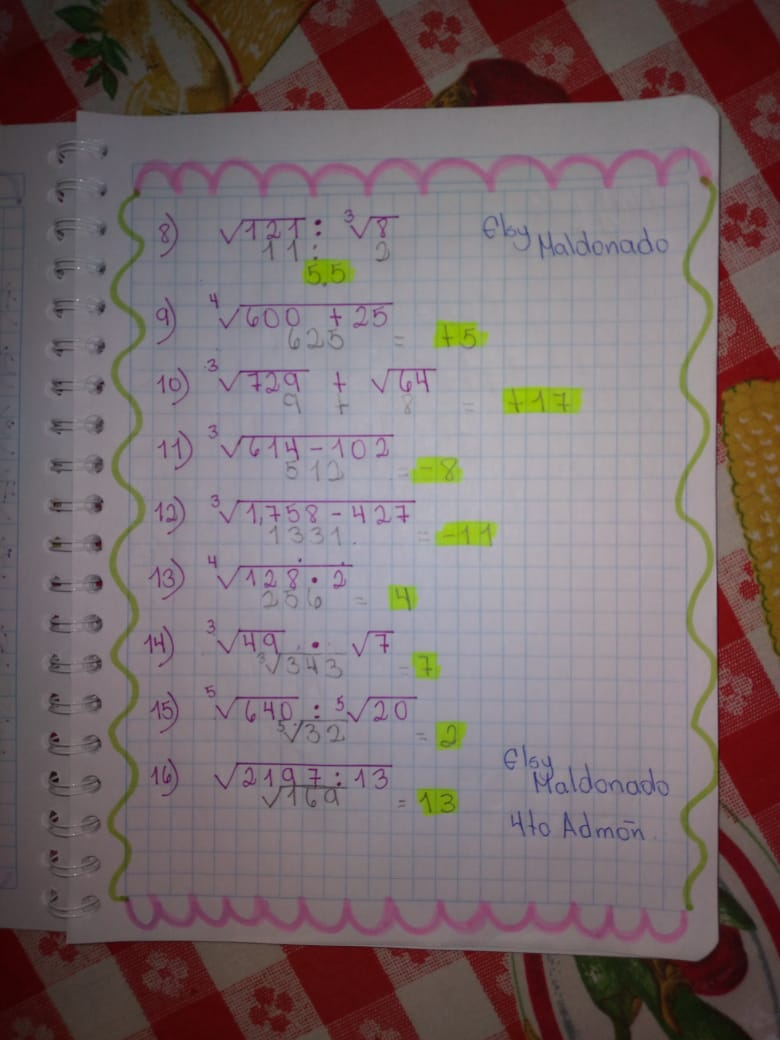 8) √121 : ³√8
Elsy Maldonado
11 : 2
5,5
9) ⁴√600 + 25
625 = +5
10) ³√729 + √64
9 + 8 = +17
11) ³√614 - 102
512 = -8
12) ³√1,758 - 427
1331. = -11
13) ⁴√128 · 2
256 = 4
14) ³√49 · √7
³√343 = 7
15) ⁵√640 : ⁵√20
⁵√32 = 2
16) √2197 : 13
√169 = 13
Elsy
Maldonado
4to Admón